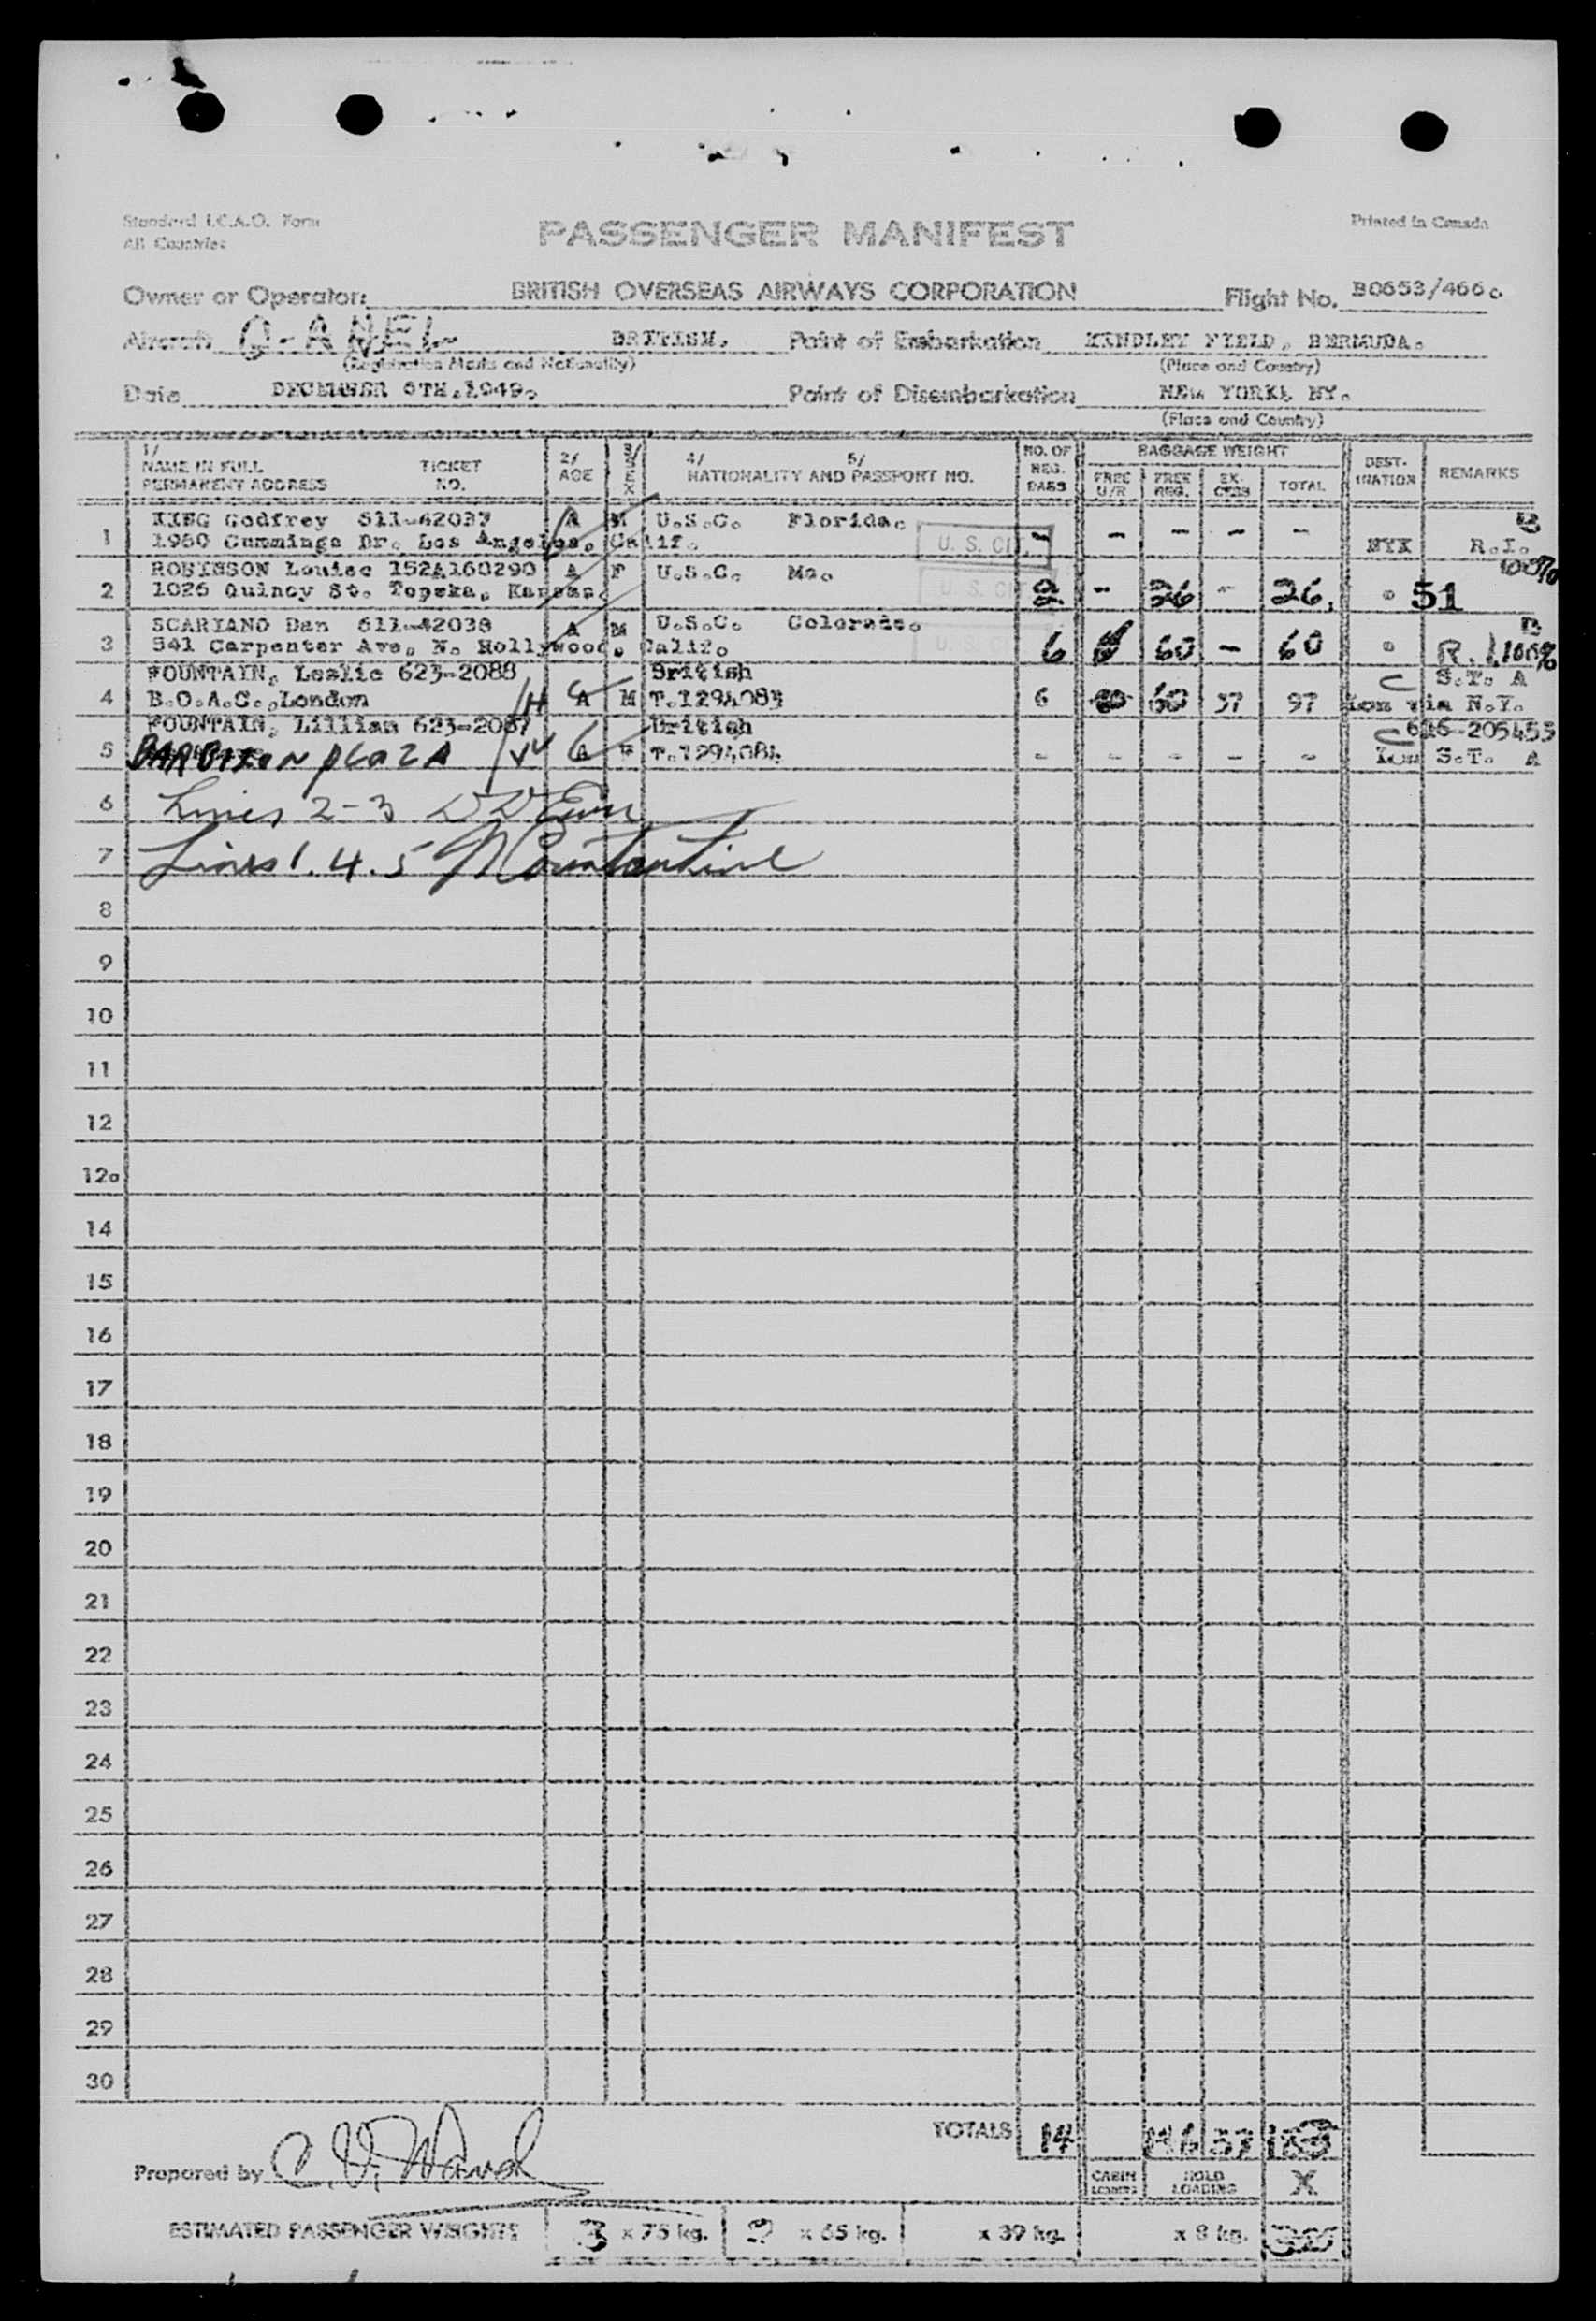 Standard I.C.A.O. Form
All Countries
PASSENGER MANIFEST
Printed in Canada
Owner or Operator: BRITISH OVERSEAS AIRWAYS CORPORATION Flight No. B0653/466.
Aircraft BRITISH. Point of Embarkation KINDLEY FIELD, BERMUDA.
(Registration Marks and Nationality) (Place and Country)
Date DECEMBER 6TH.1949. Point of Disembarkation NEW YORK, NY.
(Place and Country)
1/ NAME IN FULL PERMANENT ADDRESS TICKET NO. 2/ AGE 3/ SEX 4/ 5/ NATIONALITY AND PASSPORT NO. NO. OF REG. BAGS BAGGAGE WEIGHT FREE U/R FREE REG. EX-CESS TOTAL DEST-INATION REMARKS
KING Godfrey 611-42037 A M U.S.C. Florida. B
1 1950 Cummings Dr. Los Angeles, Calif. U. S. CIT. - - - - - NYK R.I.
ROBINSON Louise 152A160290 A F U.S.C. Mo. 100%
2 1026 Quincy St. Topeka, Kansas. U. S. CIT 2 - 26 - 26. " 51
SCARIANO Dan 611-42038 A M U.S.C. Colorado. B
3 541 Carpenter Ave, N. Hollywood, Calif. U. S. 6 60 - 60 " R.I. 100%
FOUNTAIN, Leslie 623-2088 British S.T. A
4 B.O.A.C., London A M T.1294083 6 60 37 97 Lon via N.Y.
FOUNTAIN, Lillian 623-2087 British 626-205453
5 BARBIZON PLAZA A F T.1294084 - - - - - Lon S.T. A
6 Lines 2-3
7 Lines 1. 4. 5
8
9
10
11
12
12a
14
15
16
17
18
19
20
21
22
23
24
25
26
27
28
29
30
TOTALS 14 146 37 183
Prepared by C. V. Ward
CABIN LOADING HOLD LOADING X
ESTIMATED PASSENGER WEIGHTS 3 x 75 kg. 2 x 65 kg. x 39 kg. x 8 kg.